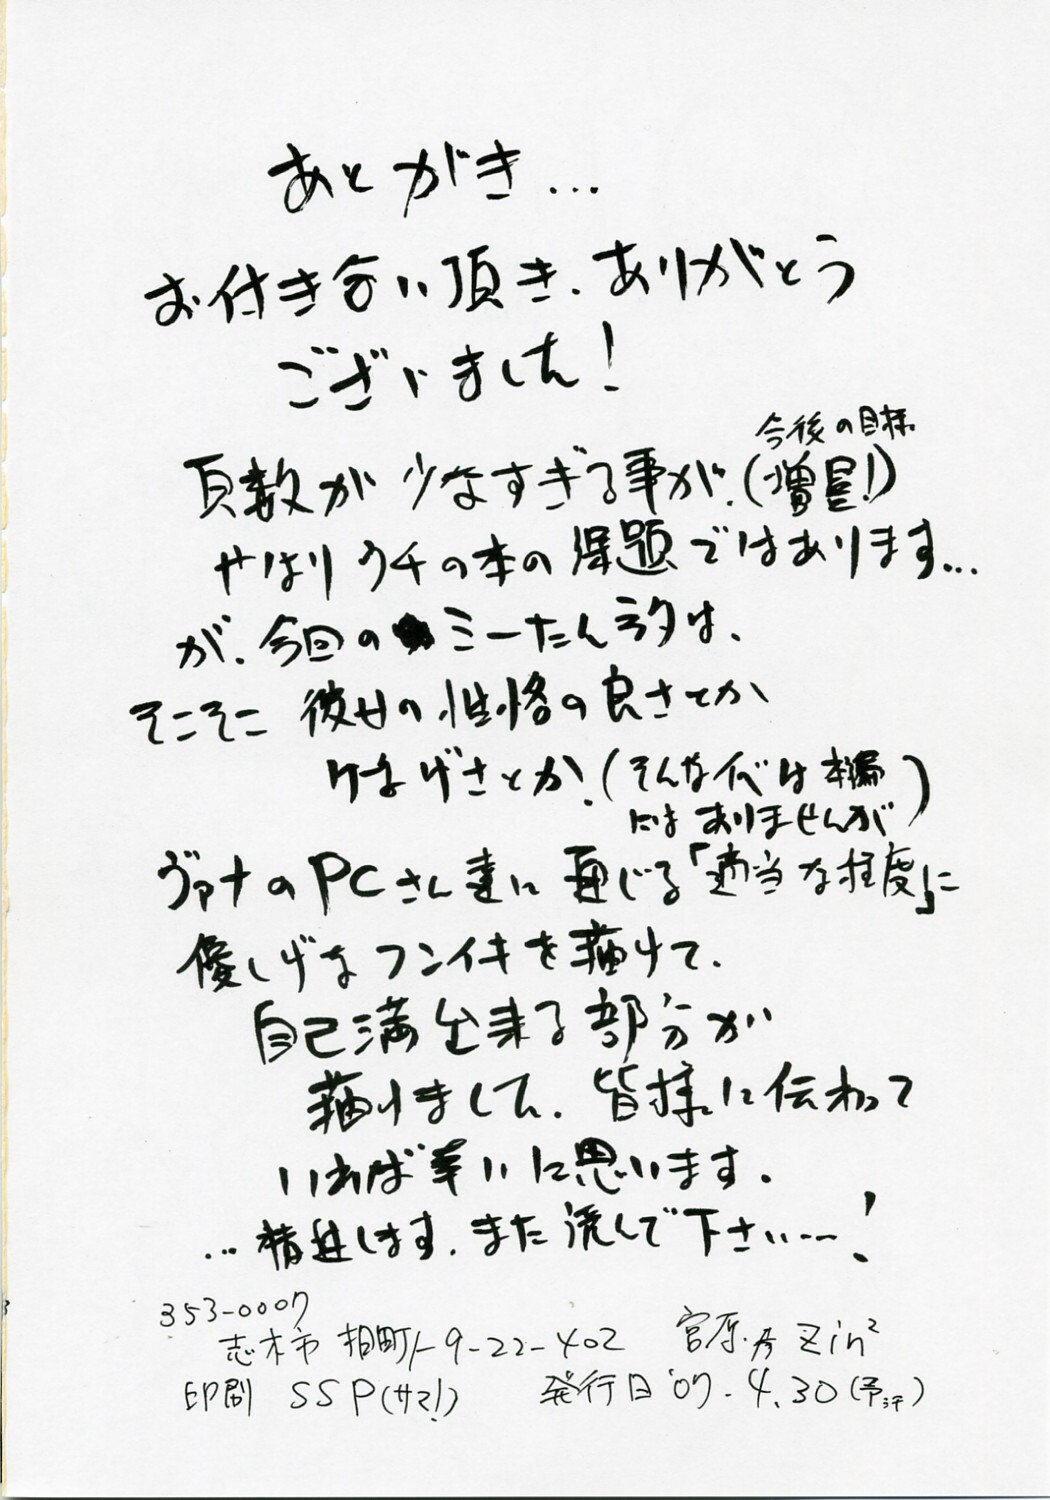 あとがき…
お付き合い頂き、ありがとう
ございました!
今後の目標
頁数が少なすぎる事が、(増量!)
やはりウチの本の課題ではあります…
が、今回のミーたんネタは、
そこそこ彼女の性格の良さとか
けなげさとか、(そんな代は本編
にはありませんが)
ヴァナのPCさん達に通じる「適当な程度」に
優しげなフンイキを描けて、
自己満出来る部分が
描けました。皆様に伝わって
いれば幸いに思います。
…精進します。また読んで下さい…!
353-0007
志木市 柏町1-9-22-402 宮原歩 Zin²
印刷 SSP(サマ!) 発行日 '07.4.30(予定)